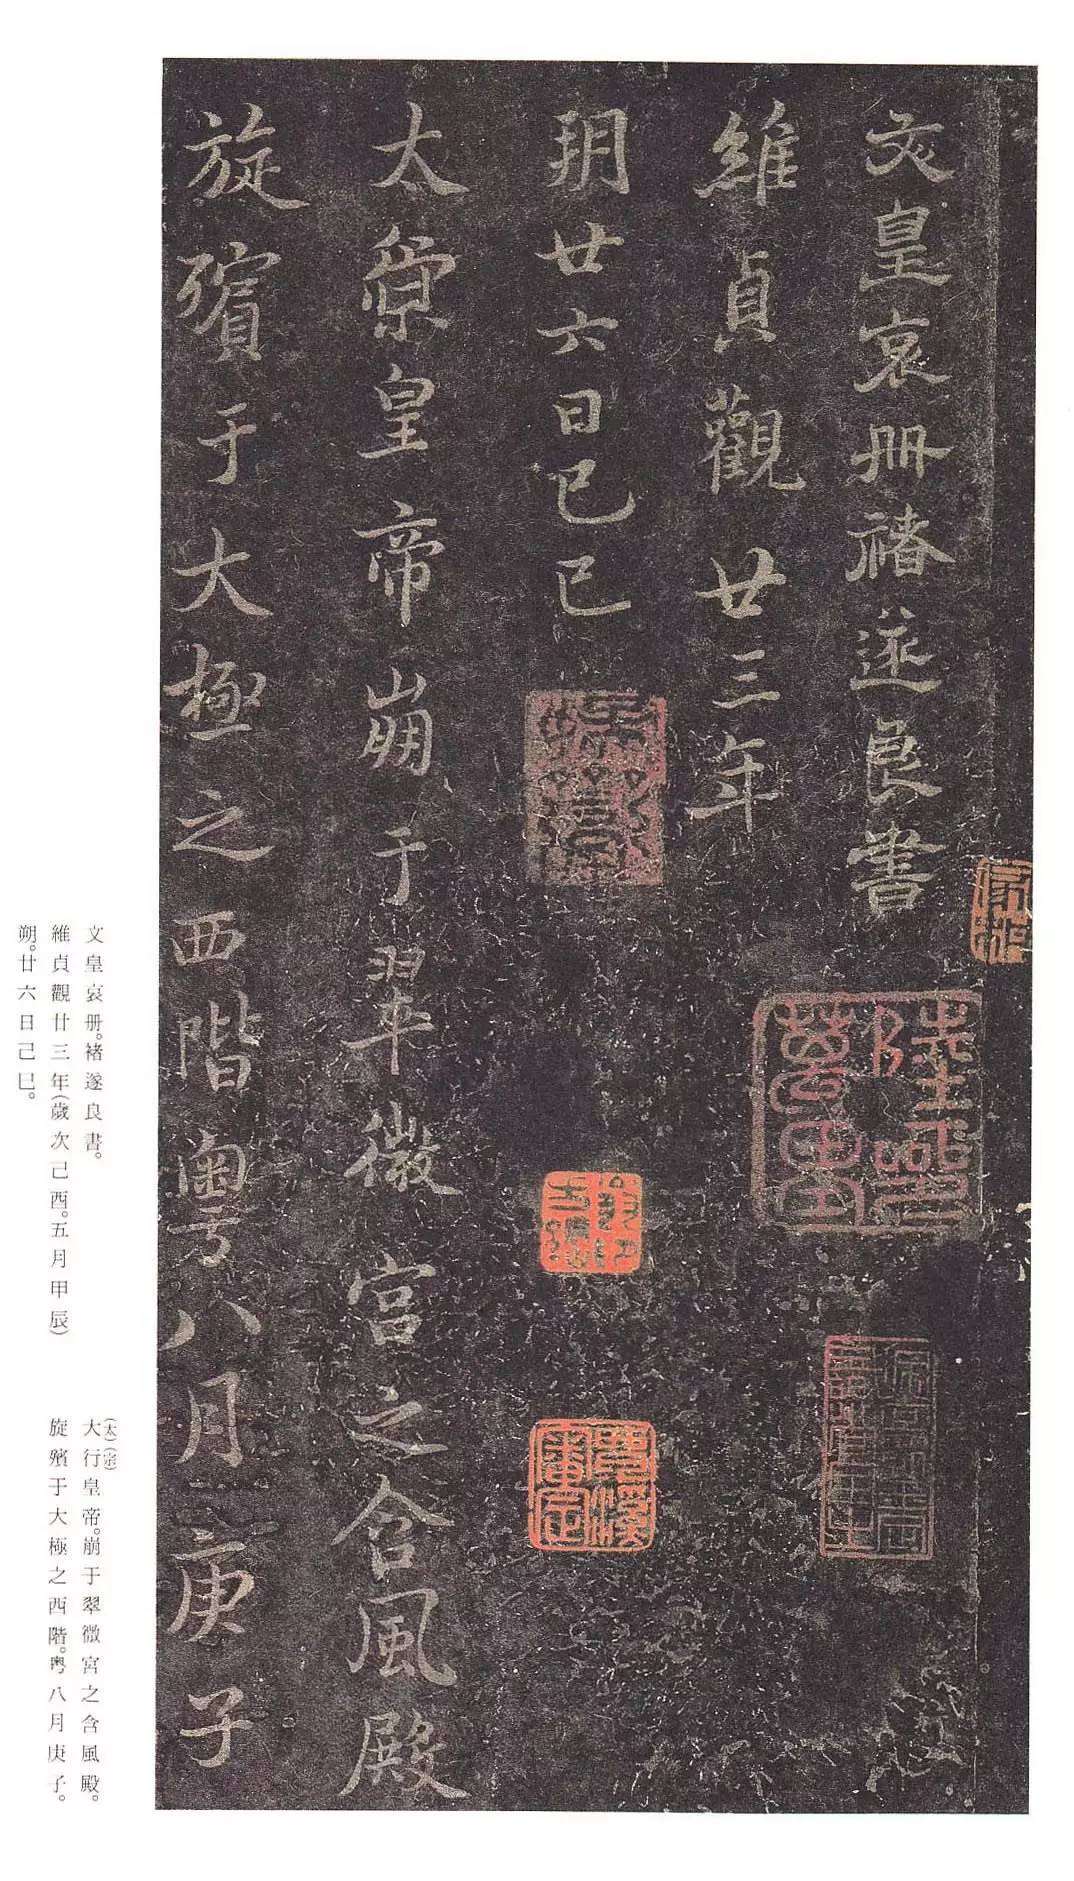 文皇哀册褚遂良書
維貞觀廿三年
玥廿六日已已
太宗皇帝崩于翠微宮之含風殿
旋殯于大極之西階粵八月庚子
文皇哀册。褚遂良書。
維貞觀廿三年(歲次己酉。五月甲辰)
朔。廿六日己巳。
(太)(宗)
大行皇帝。崩于翠微宮之含風殿。
旋殯于大極之西階。粵八月庚子。